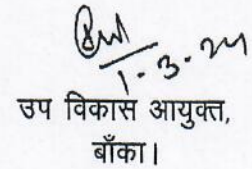 1.3.24
उप विकास आयुक्त,
बाँका।